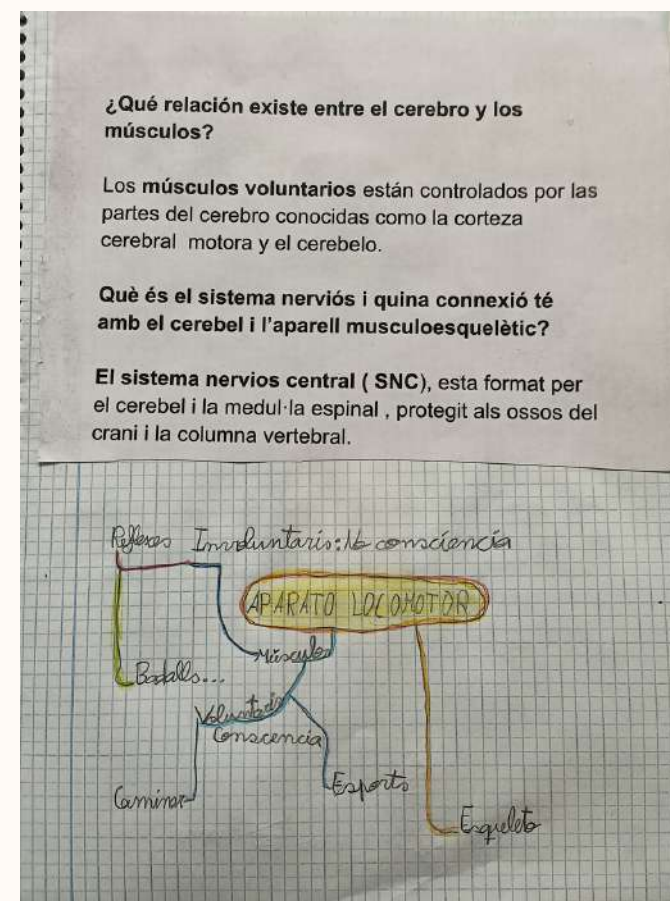 ¿Qué relación existe entre el cerebro y los
músculos?
Los músculos voluntarios están controlados por las
partes del cerebro conocidas como la corteza
cerebral motora y el cerebelo.
Què és el sistema nerviós i quina connexió té
amb el cerebel i l'aparell musculoesquelètic?
El sistema nervios central ( SNC), esta format per
el cerebel i la medul·la espinal , protegit als ossos del
crani i la columna vertebral.
Reflexes Involuntaris: No consciència
APARATO LOCOMOTOR
Músculos
Badalls...
Voluntaris
Conscencia
Caminar
Esports
Esqueleto